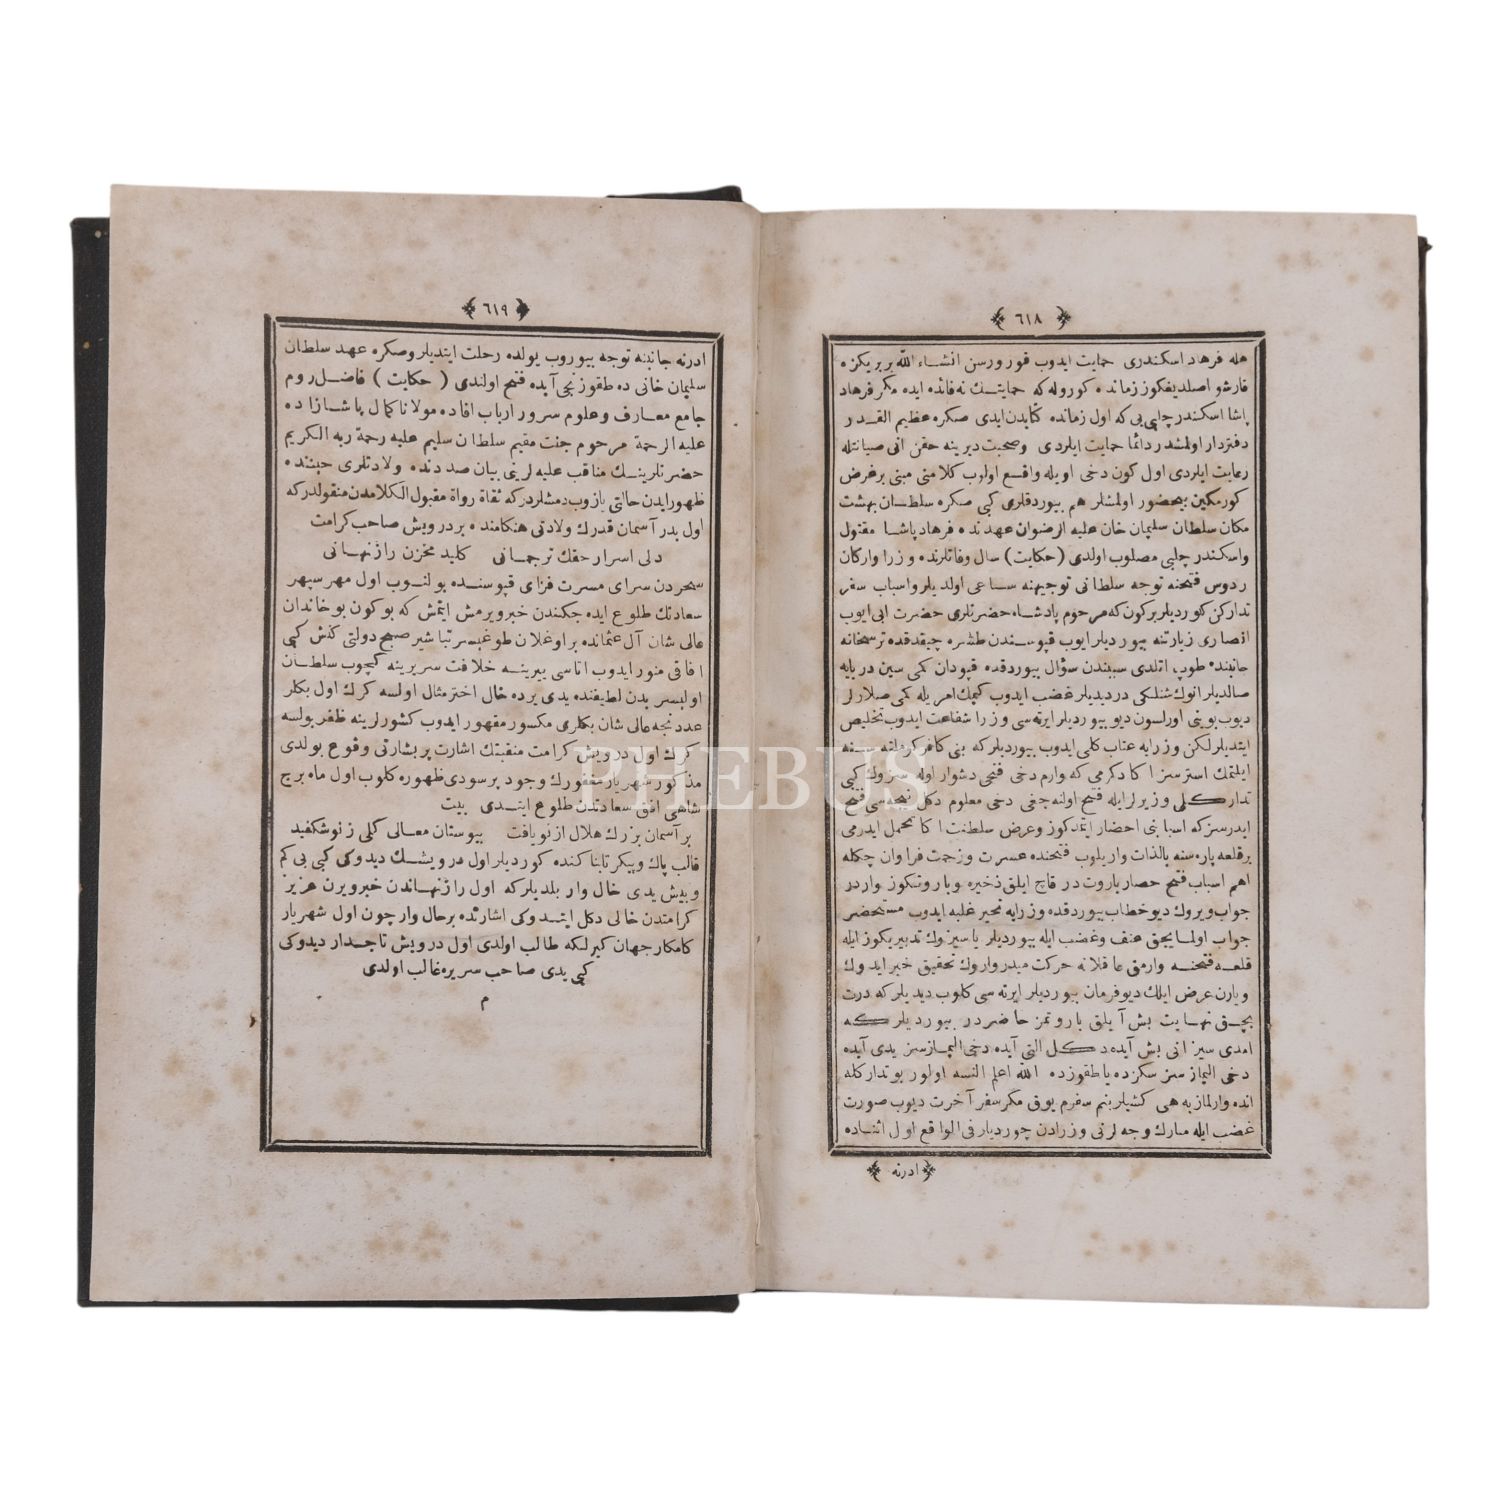 ٦١٨
هله فرهاد اسكندرى حمايت ايدوب قورورسن انشاء الله بربريكزه
قارشو اصلديغكوز زمانده كوروله كه حمايتك نه فائده ايده مكر فرهاد
پاشا اسكندر چلبى بى كه اول زمانده كتابدن ايدى صكره عظيم القدر
دفتردار اولمشدر دائما حمايت ايلردى وصحبت ديرينه حقن انى صيانتله
رعايت ايلردى اول كون دخى اويله واقع اولوب كلامنى مبنى برغرض
كورمكين بيحضور اولمشلر هم بيوردقلرى كبى صكره سلطان بهشت
مكان سلطان سليمان خان عليه الرضوان عهدنده فرهاد پاشا مقتول
واسكندر چلبى مصلوب اولدى (حكايت) سال وفاتلرنده وزرا واركان
ردوس فتحنه توجه سلطانى توجيهنه ساعى اولديلر واسباب سفر
تداركن كورديلر بركون كه مرحوم پادشاه حضرتلرى حضرت ابى ايوب
انصارى زيارتنه بيورديلر ايوب قپوسندن طشره چيقدقده ترسخانه
جانبنده طوپ اتلدى سببندن سؤال بيوردقده قپودان كمى سين دريايه
صالديلر انوك شنلكى در ديديلر غضب ايدوب كيمك امريله كمى صلارلر
ديوب بوينى اورلسون ديو بيورديلر ايرته سى وزرا شفاعت ايدوب تخليص
ايتديلر لكن وزرايه عتاب كلى ايدوب بيورديلر كه بنى كافر
ايلتمك استرسز اكا دكرمى كه وارم دخى فتحى دشوار اوله سزوك كبى
تداركلى وزيرلر ايله فتح اولنه جغى دخى معلوم دكل نيجه سى فتح
ايدرسزكه اسبابنى احضار ايتدكوز وعرض سلطنت اكا تحمل ايدرمى
برقلعه پاره سنه بالذات واريلوب فتحنده عسرت وزحمت فراوان چكله
اهم اسباب فتح حصار باروت در قاچ ايلق ذخيره وباروتكوز واردر
جواب ويروك ديو خطاب بيوردقده وزرايه تحير غلبه ايدوب مستحضر
جواب اولمايجق عنف وغضب ايله بيورديلر يا سيزوك تدبيريكوز ايله
قلعه فتحنه وارمق عاقلانه حركت ميدر واروك تحقيق خبر ايدوك
ويارن عرض ايلك ديو فرمان بيورديلر ايرته سى كلوب ديديلر كه درت
بچق نهايت بش آيلق باروتمز حاضردر بيورديلر كه
امدى سيز انى بش آيده دكل التى آيده دخى الیمازسز يدى آيده
دخى اليمازسز سكزده ياطقوزده الله اعلم النسه اولور بو تداركله
انده وارلماز به هى كشيلر بنم سفرم يوق مكر سفر آخرت ديوب صورت
غضب ايله مبارك وجه لرنى وزرادن چورديلر فى الواقع اول اثناده
ادرنه
٦١٩
ادرنه جانبنه توجه بيوروب يولده رحلت ايتديلر وصكره عهد سلطان
سليمان خانى ده طقوزنجى آيده فتح اولندى (حكايت) فاضل روم
جامع معارف وعلوم سرور ارباب افاده مولانا كمال پاشازاده
عليه الرحمة مرحوم جنت مقيم سلطان سليم عليه رحمة ربه الكريم
حضرتلرينك مناقب عليه لرنى بيان صددنده ولادتلرى حيننده
ظهور ايدن حالتى يازوب دمشلردر كه ثقاة رواة مقبول الكلامدن منقولدر كه
اول بدر آسمان قدرك ولادتى هنكامنده بر درويش صاحب كرامت
دلى اسرار حقك ترجمانى كليد مخزن راز نهانى
سحردن سراى مسرت فزاى قپوسنده بولنوب اول مهر سپهر
سعادتك طلوع ايده جكندن خبر ويرمش ايتمش كه بوكون بو خاندان
عالى شان آل عثمانده بر اوغلان طوغيسر تباشير صبح دولتى كنش كبى
افاقى منور ايدوب اتاسى ييرينه خلافت سريرينه كچوب سلطان
اوليسر بدن لطيفنده يدى يرده خال اختر مثال اولسه كرك اول بكلر
عددنجه عالى شان بكلرى مكسور مقهور ايدوب كشورلرينه ظفر بولسه
كرك اول درويش كرامت منقبتك اشارت پر بشارتى وقوع بولدى
مذكور شهريار مغفورك وجود پرسودى ظهوره كلوب اول ماه برج
شاهى افق سعادتدن طلوع ايتدى بيت
بر آسمان بزرك هلال از نو يافت ببوستان معالى كلى ز نو شكفيد
قالب پاك وپيكر تابناكنده كورديلر اول درويشك ديدوكى كبى بى كم
وبيش يدى خال وار بلديلر كه اول راز نهاندن خبر ويرن عزيز
كرامتدن خالى دكل ايتدوكى اشارتده بر حال وار چون اول شهريار
كامكار جهان كيرلكه طالب اولدى اول درويش تاجدار ديدوكى
كبى يدى صاحب سريره غالب اولدى
م
PHEBUS